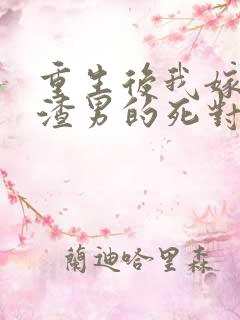 重生後我嫁
渣男的死對
蘭迪哈里森